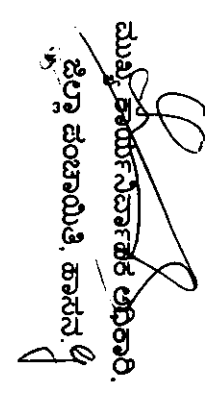 ಮುಖ್ಯ ಕಾರ್ಯನಿರ್ವಾಹಕ ಅಧಿಕಾರಿ.
ಜಿಲ್ಲಾ ಪಂಚಾಯಿತಿ, ಹಾಸನ.